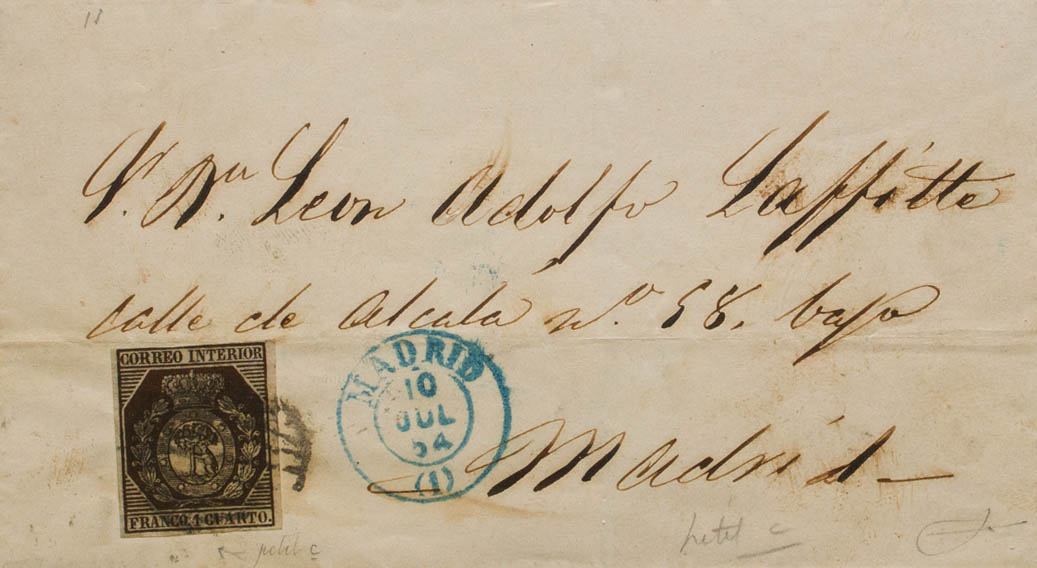 18
Sr. Dn. Leon Adolfo Laffitte
calle de Alcalá nº. 58. bajo
Madrid
CORREO INTERIOR
FRANCO. 1 CUARTO.
MADRID
10
JUL
54
(1)
petit c
petit c